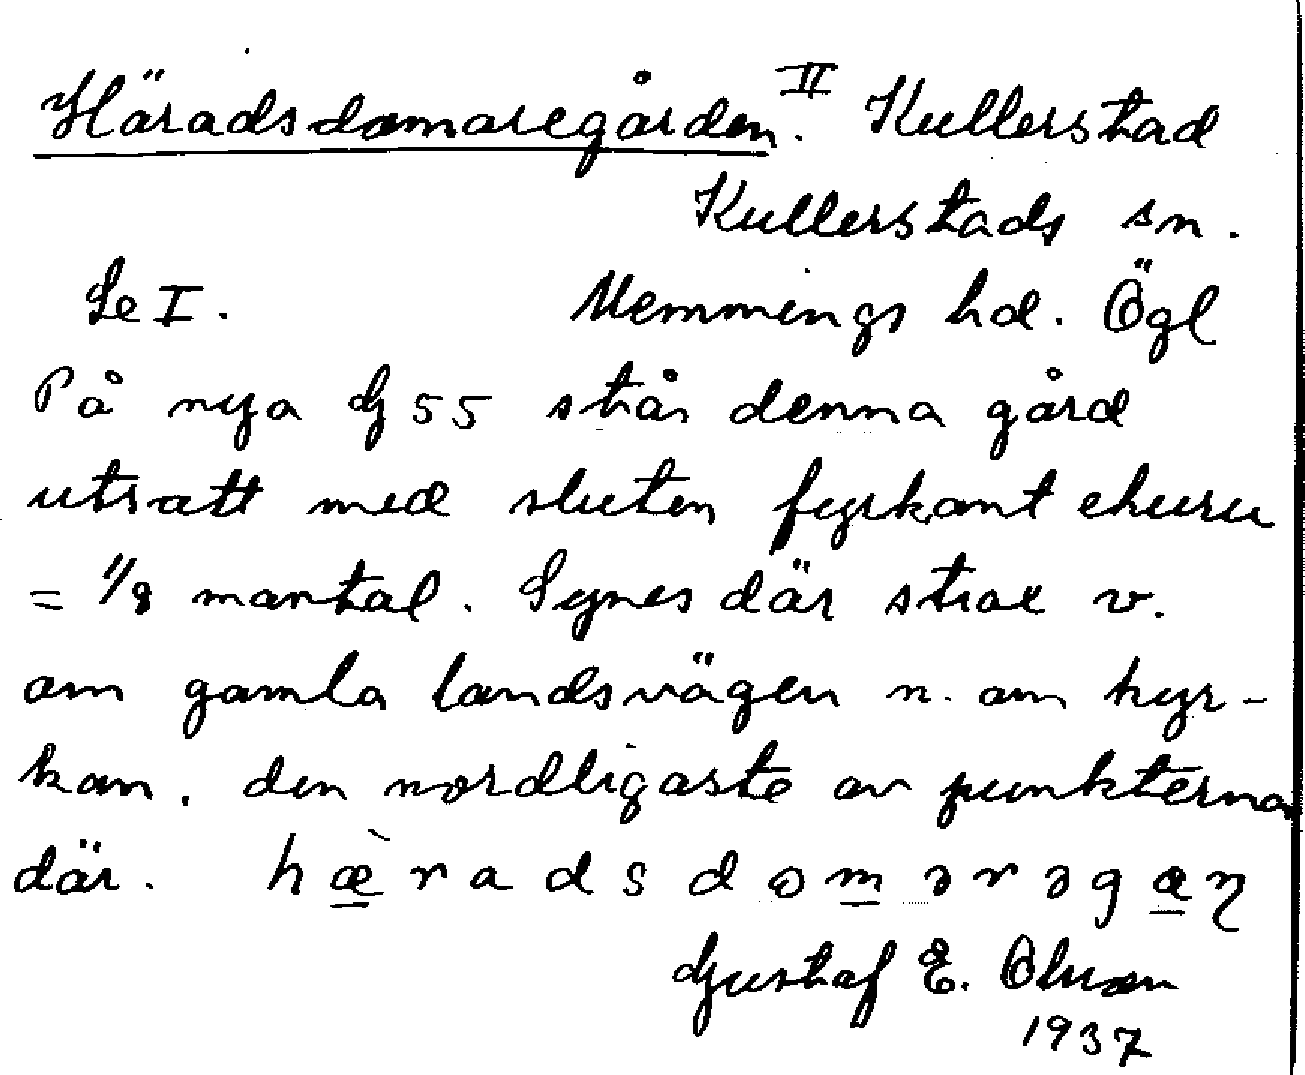 Häradsdomaregården. II Kullerstad
Kullerstads sn.
Se I. Memmings hd. Ögl
På nya G 55 står denna gård
utsatt med sluten fyrkant ehuru
= 1/8 mantal. Synes där strax v.
om gamla landsvägen n. om kyr-
kan, den nordligaste av punkterna
där. hæ̀radsdomərəgaɳ
Gustaf E. Olsson
1937